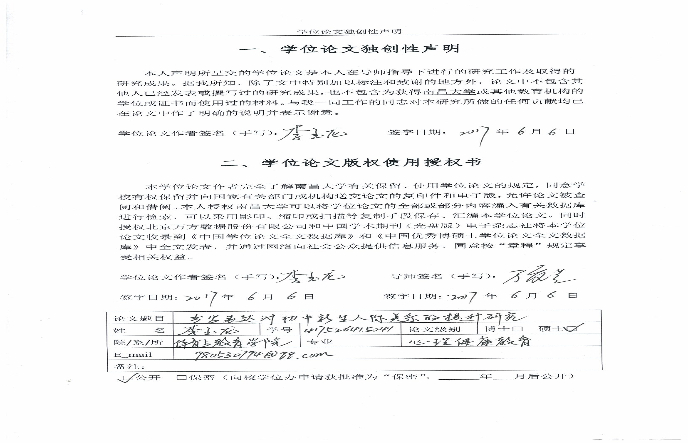 学位论文独创性声明
一、学位论文独创性声明
本人声明所呈交的学位论文是本人在导师指导下进行的研究工作及取得的
研究成果。据我所知，除了文中特别加以标注和致谢的地方外，论文中不包含其
他人已经发表或撰写过的研究成果，也不包含为获得南昌大学或其他教育机构的
学位或证书而使用过的材料。与我一同工作的同志对本研究所做的任何贡献均已
在论文中作了明确的说明并表示谢意。
学位论文作者签名（手写）： 签字日期：2017年6月6日
二、学位论文版权使用授权书
本学位论文作者完全了解南昌大学有关保留、使用学位论文的规定，同意学
校有权保留并向国家有关部门或机构送交论文的复印件和电子版，允许论文被查
阅和借阅。本人授权南昌大学可以将学位论文的全部或部分内容编入有关数据库
进行检索，可以采用影印、缩印或扫描等复制手段保存、汇编本学位论文。同时
授权北京万方数据股份有限公司和中国学术期刊（光盘版）电子杂志社将本学位
论文收录到《中国学位论文全文数据库》和《中国优秀博硕士学位论文全文数据
库》中全文发表，并通过网络向社会公众提供信息服务，同意按“章程”规定享
受相关权益。
学位论文作者签名（手写）： 导师签名（手写）：
签字日期：2017年6月6日 签字日期：2017年6月6日
论文题目 对初中新生人际关系的
姓名 学号 论文级别 博士□ 硕士☑
院/系/所 专业 心理健康教育
E_mail
备注：
☑公开 □保密（向校学位办申请获批准为“保密”， 年 月后公开）